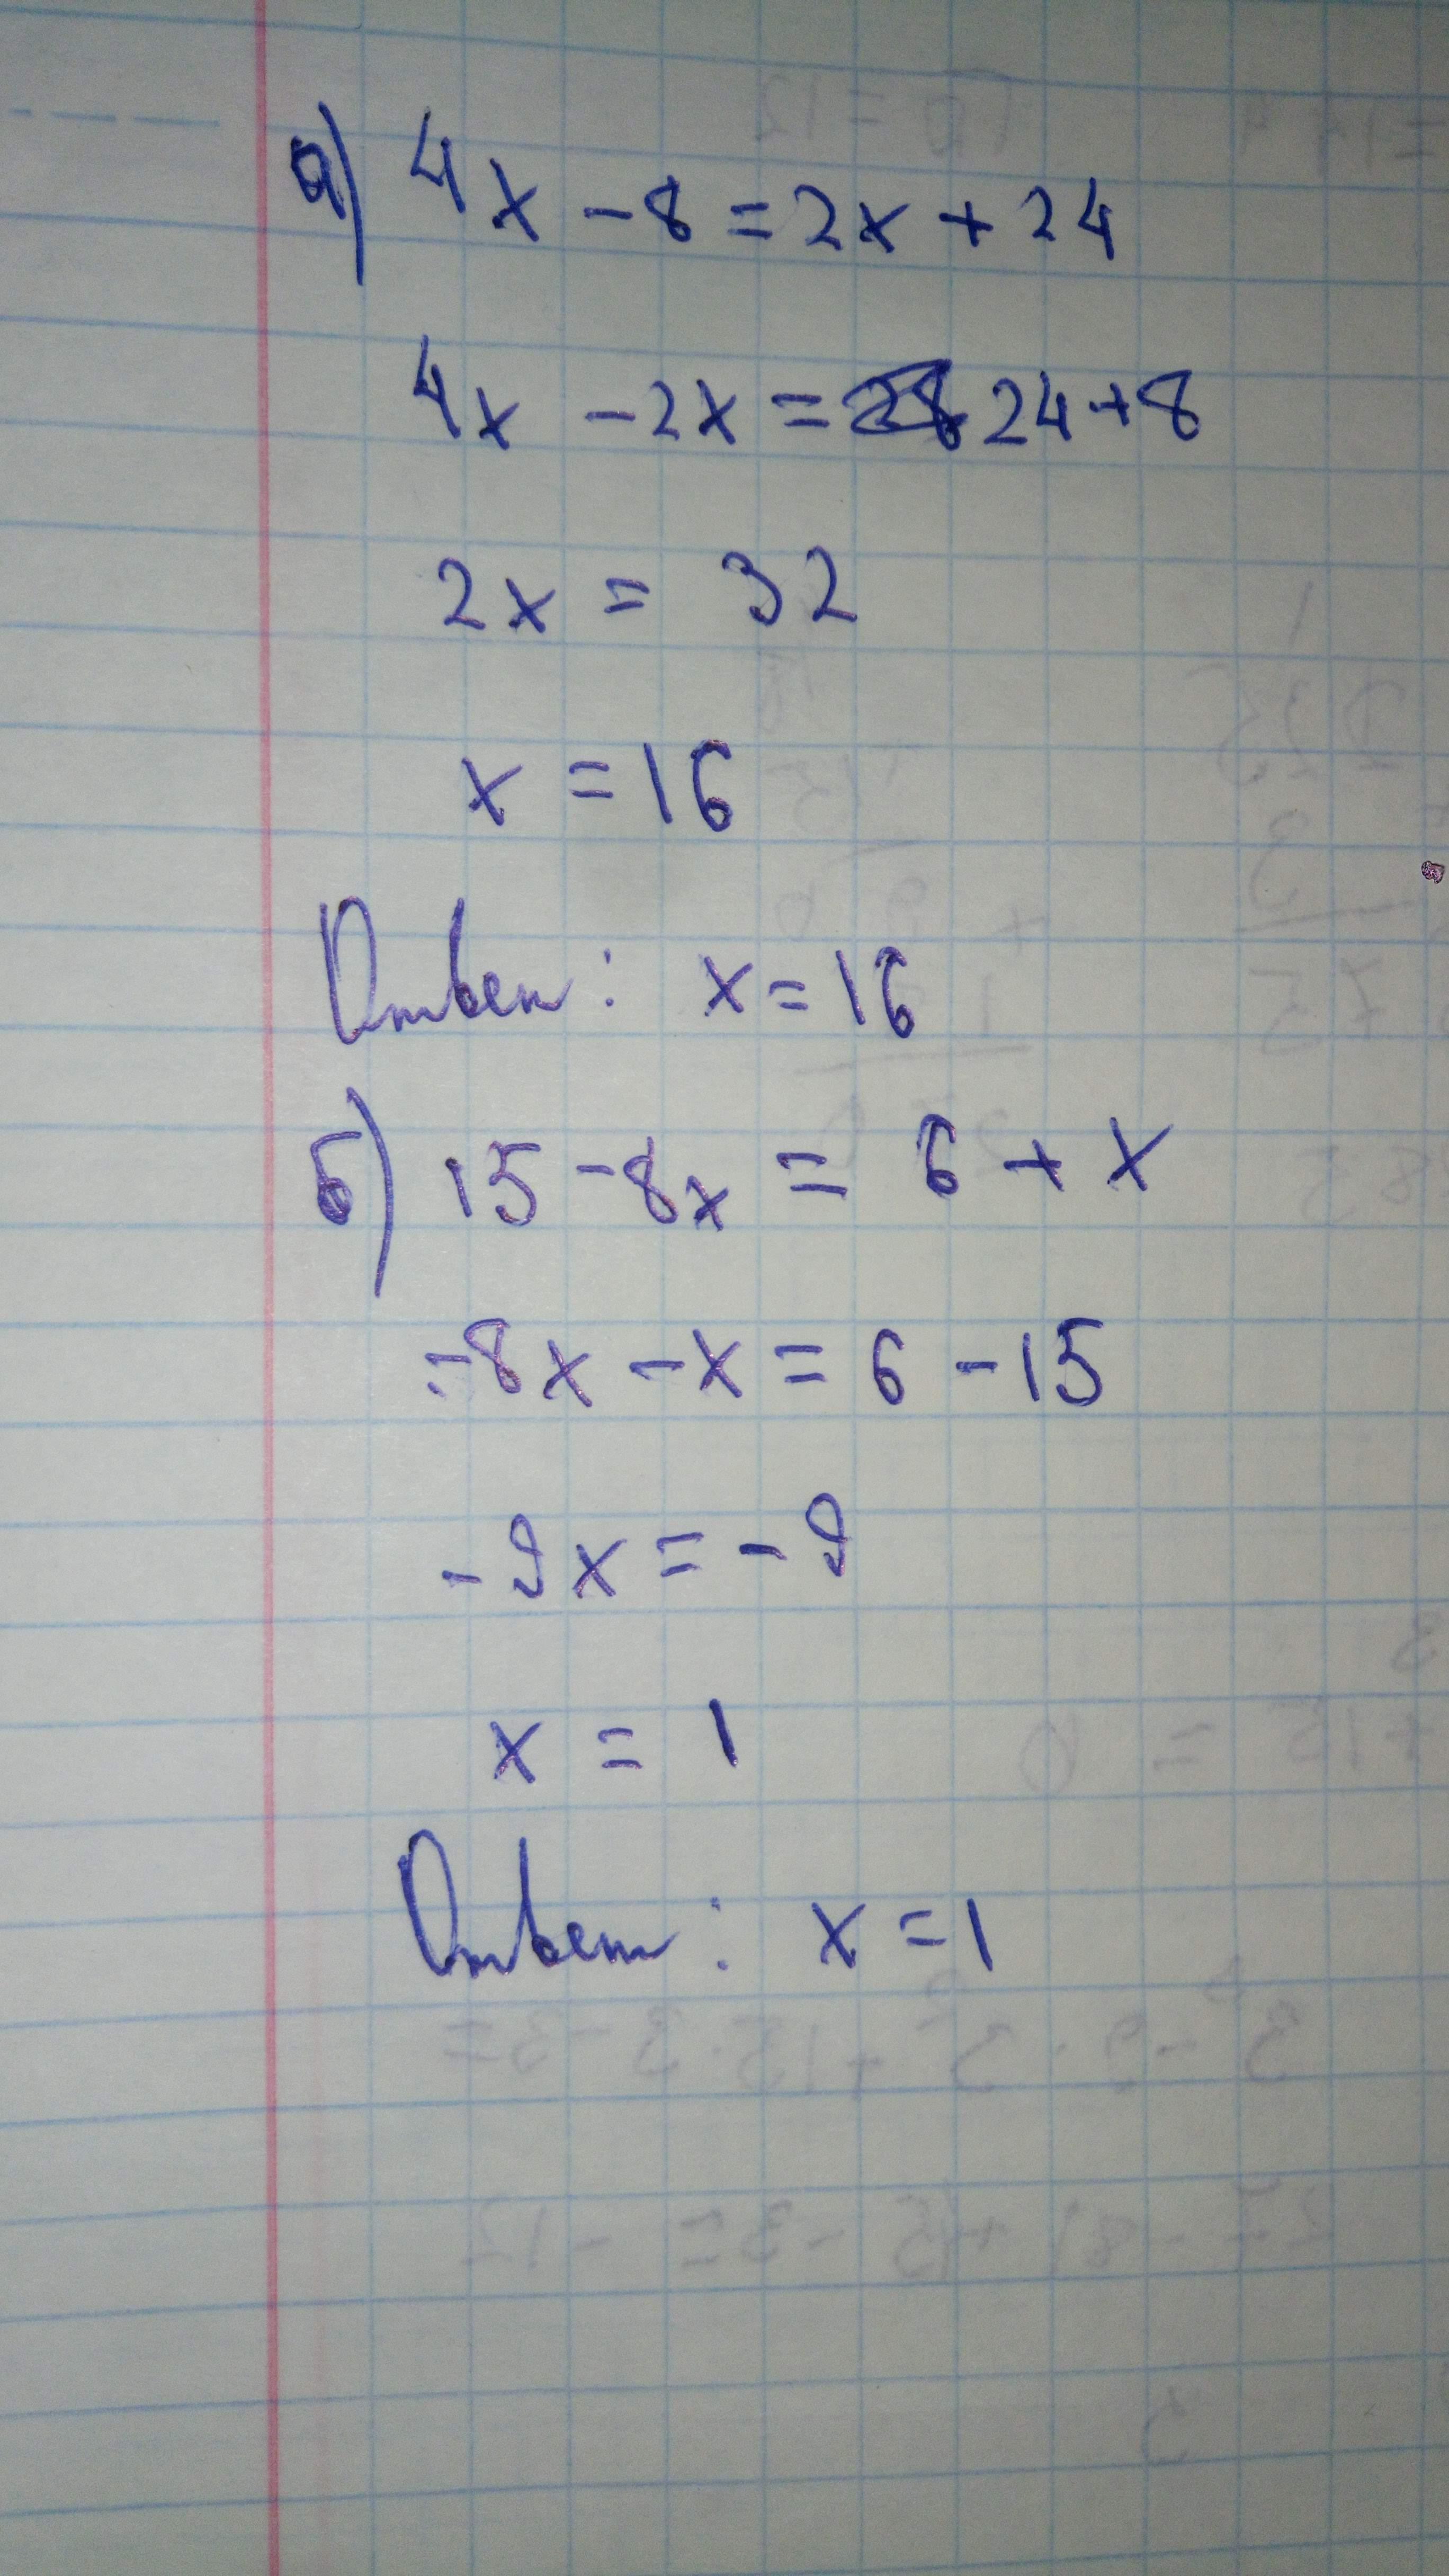 а) 4x - 8 = 2x + 24
4x - 2x = 24 + 8
2x = 32
x = 16
Ответ: x = 16
б) 15 - 8x = 6 + x
-8x - x = 6 - 15
-9x = -9
x = 1
Ответ: x = 1